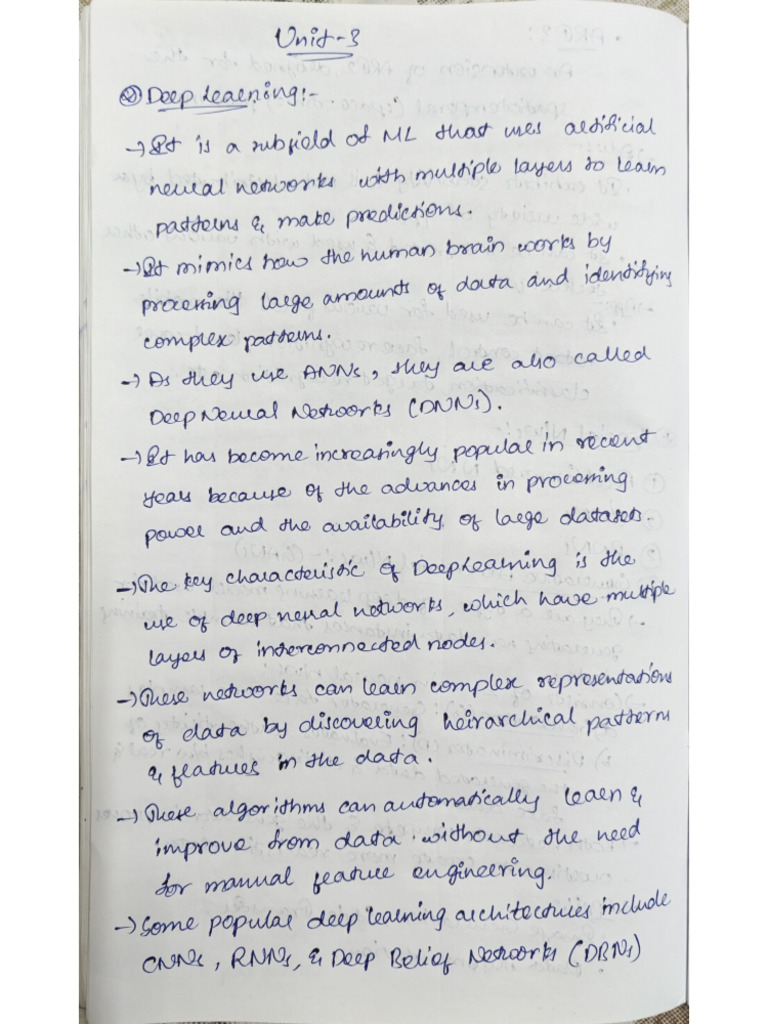 Unit-3
Deep Learning:-
→ It is a subfield of ML that uses artificial
neural networks with multiple layers to learn
patterns & make predictions.
→ It mimics how the human brain works by
processing large amounts of data and identifying
complex patterns.
→ As they use ANNs, they are also called
Deep Neural Networks (DNNs).
→ It has become increasingly popular in recent
years because of the advances in processing
power and the availability of large datasets.
→ The key characteristic of Deep Learning is the
use of deep neural networks, which have multiple
layers of interconnected nodes.
→ These networks can learn complex representations
of data by discovering heirarchical patterns
& features in the data.
→ These algorithms can automatically learn &
improve from data without the need
for manual feature engineering.
→ Some popular deep learning architectures include
CNNs, RNNs, & Deep Belief Networks (DBNs)